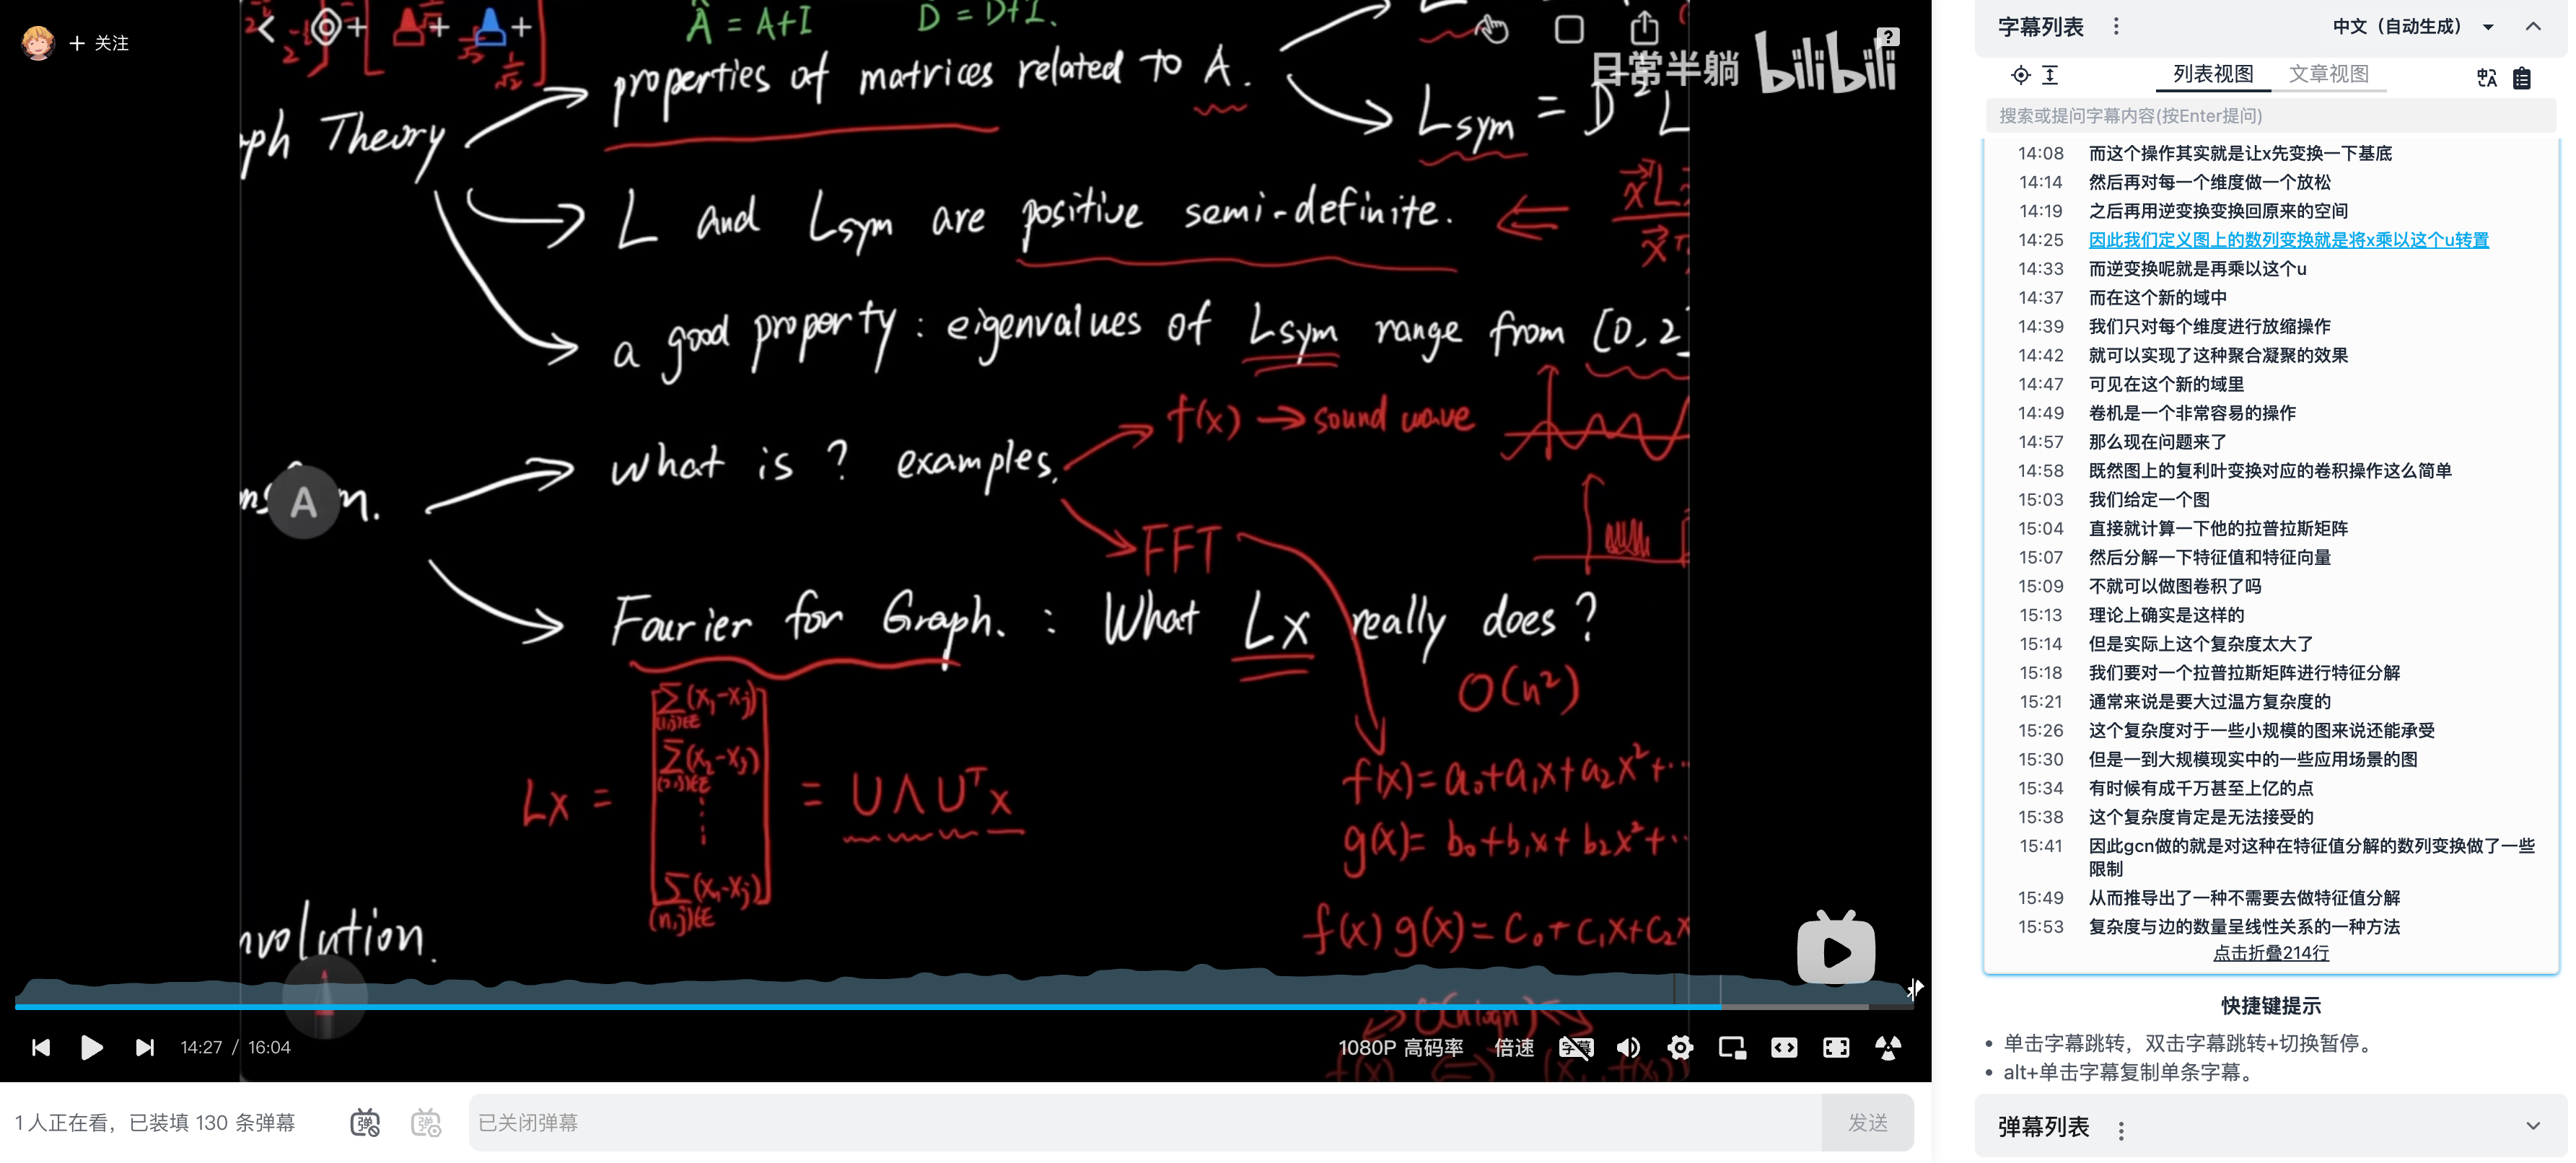 关注
Â = A+I
D̂ = D+I.
properties of matrices related to A.
Lsym = D L
日常半躺
bilibili
ph Theory
L and Lsym are positive semi-definite.
a good property : eigenvalues of Lsym range from [0, 2
f(x) → sound wave
what is ? examples.
A
m.
FFT
Fourier for Graph. : What Lx really does ?
O(n²)
Lx = 
∑(x₁-xⱼ)
(1,j)∈E
∑(x₂-xⱼ)
(2,j)∈E
⋮
∑(xₙ-xⱼ)
(n,j)∈E
= U Λ Uᵀ x
f(x) = a₀+a₁x+a₂x²+⋯
g(x) = b₀+b₁x+b₂x²+⋯
f(x) g(x) = C₀+C₁x+C₂x
nvolution.
O(nlogn)
14:27 / 16:04
1080P 高码率
倍速
字幕
1人正在看，已装填 130 条弹幕
弹
弹
已关闭弹幕
发送
字幕列表
中文（自动生成）
列表视图
文章视图
搜索或提问字幕内容(按Enter提问)
14:08 而这个操作其实就是让x先变换一下基底
14:14 然后再对每一个维度做一个放松
14:19 之后再用逆变换变换回原来的空间
14:25 因此我们定义图上的数列变换就是将x乘以这个u转置
14:33 而逆变换呢就是再乘以这个u
14:37 而在这个新的域中
14:39 我们只对每个维度进行放缩操作
14:42 就可以实现了这种聚合凝聚的效果
14:47 可见在这个新的域里
14:49 卷机是一个非常容易的操作
14:57 那么现在问题来了
14:58 既然图上的复利叶变换对应的卷积操作这么简单
15:03 我们给定一个图
15:04 直接就计算一下他的拉普拉斯矩阵
15:07 然后分解一下特征值和特征向量
15:09 不就可以做图卷积了吗
15:13 理论上确实是这样的
15:14 但是实际上这个复杂度太大了
15:18 我们要对一个拉普拉斯矩阵进行特征分解
15:21 通常来说是要大过温方复杂度的
15:26 这个复杂度对于一些小规模的图来说还能承受
15:30 但是一到大规模现实中的一些应用场景的图
15:34 有时候有成千万甚至上亿的点
15:38 这个复杂度肯定是无法接受的
15:41 因此gcn做的就是对这种在特征值分解的数列变换做了一些
限制
15:49 从而推导出了一种不需要去做特征值分解
15:53 复杂度与边的数量呈线性关系的一种方法
点击折叠214行
快捷键提示
单击字幕跳转，双击字幕跳转+切换暂停。
alt+单击字幕复制单条字幕。
弹幕列表